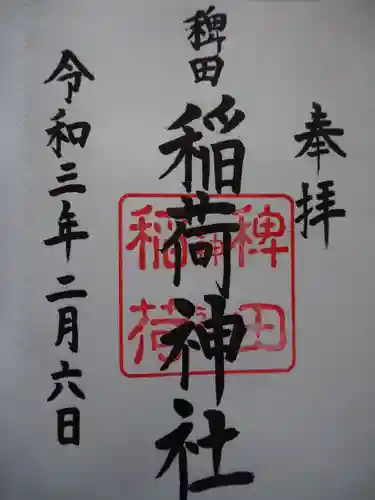 奉拝
稗田
稲荷神社
令和三年二月六日
稗田
稲荷